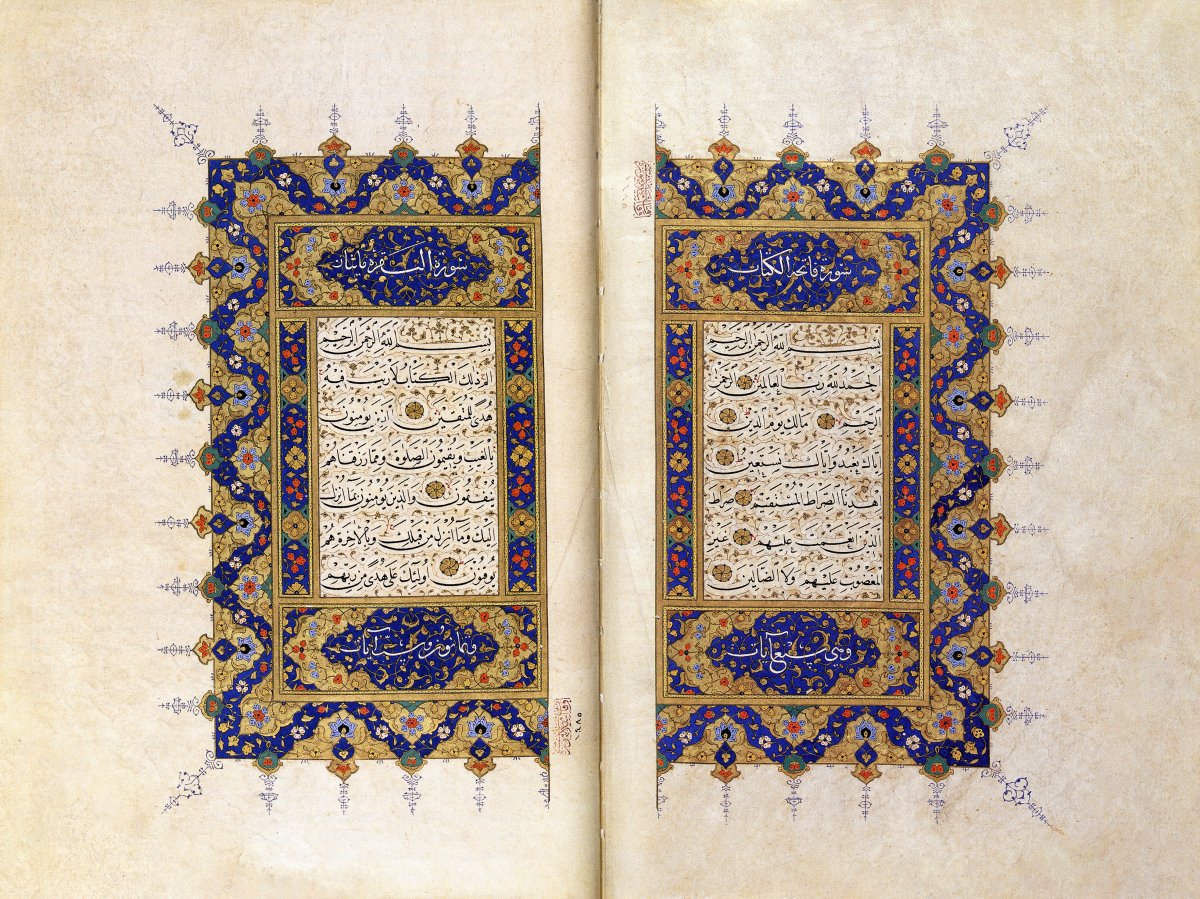 سورة فاتحة الكتاب
بسم الله الرحمن الرحيم
الحمد لله رب العالمين الرحمن
الرحيم مالك يوم الدين
اياك نعبد واياك نستعين
اهدنا الصراط المستقيم صراط
الذين انعمت عليهم غير
المغضوب عليهم ولا الضالين
وهي سبع آيات
سورة البقرة مائتان
بسم الله الرحمن الرحيم
الم ذلك الكتاب لا ريب فيه
هدى للمتقين الذين يؤمنون
بالغيب ويقيمون الصلوة ومما رزقناهم
ينفقون والذين يؤمنون بما انزل
اليك وما انزل من قبلك وبالآخرة هم
يوقنون اولئك على هدى من ربهم
وثمانون وست آيات